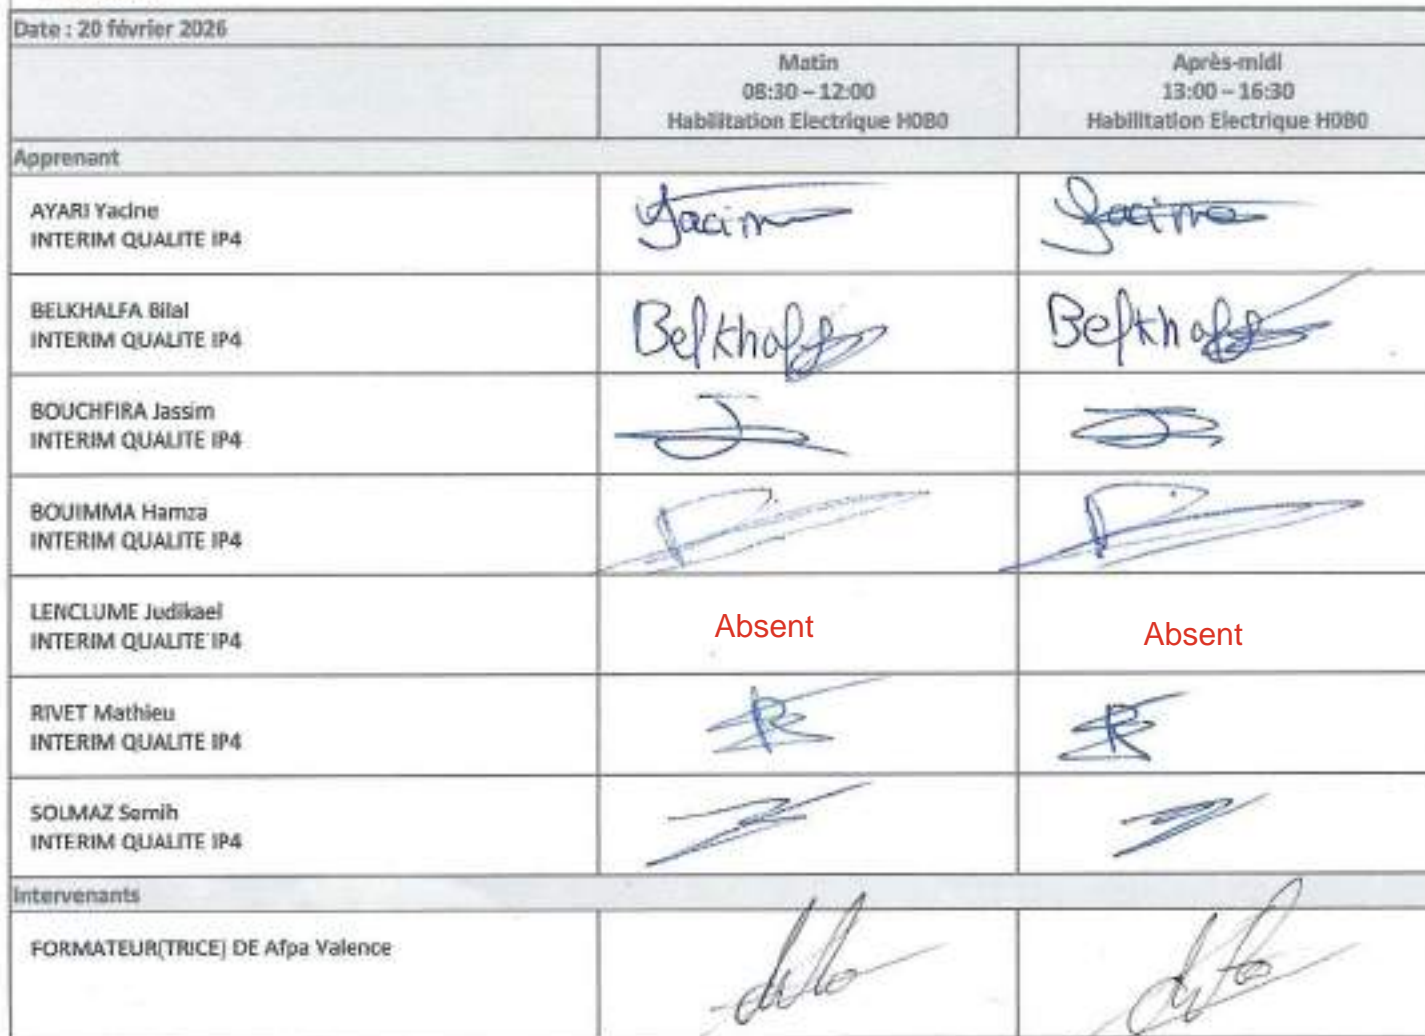 Date : 20 février 2026
Matin
08:30 – 12:00
Habilitation Electrique H0B0
Après-midi
13:00 – 16:30
Habilitation Electrique H0B0
Apprenant
AYARI Yacine
INTERIM QUALITE IP4
Yacine
Yacine
BELKHALFA Bilal
INTERIM QUALITE IP4
Belkhalfa
Belkhalfa
BOUCHFIRA Jassim
INTERIM QUALITE IP4
BOUIMMA Hamza
INTERIM QUALITE IP4
LENCLUME Judikael
INTERIM QUALITE IP4
Absent
Absent
RIVET Mathieu
INTERIM QUALITE IP4
SOLMAZ Semih
INTERIM QUALITE IP4
Intervenants
FORMATEUR(TRICE) DE Afpa Valence